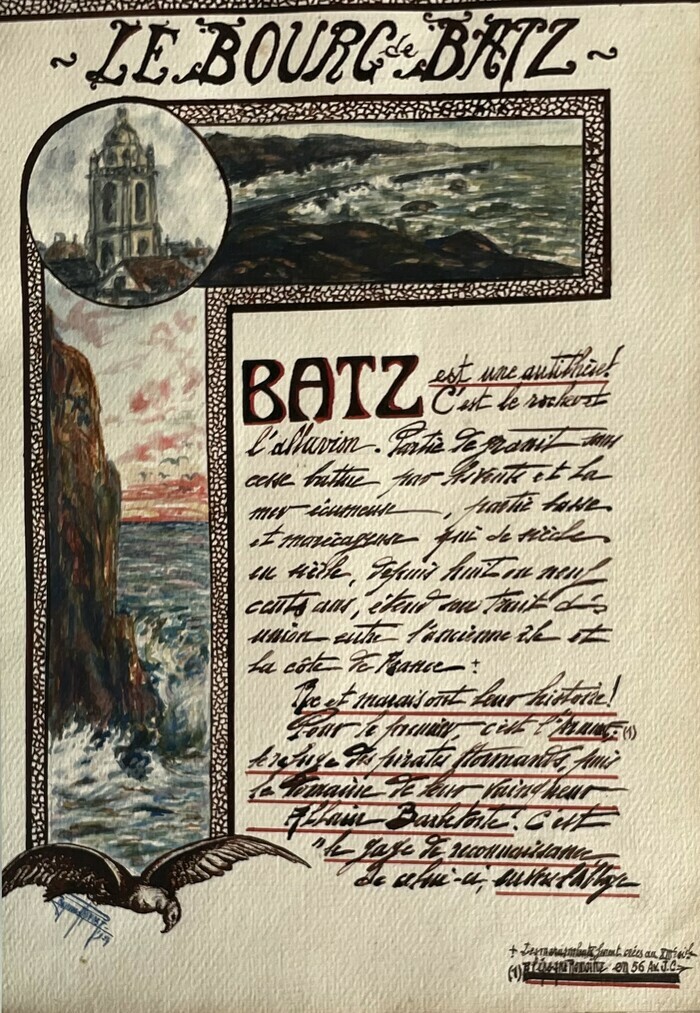 ~ LE BOURG de BATZ ~
BATZ est une antithèse!
C'est le roc et
l'alluvion. Partie de granit sans
cesse battue par les vents et la
mer écumeuse, partie basse
et marécageuse qui de siècle
en siècle, depuis huit ou neuf
cents ans, étend son trait d'u-
union entre l'ancienne île et
la côte de France +
Roc et marais ont leur histoire!
Pour le premier, c'est l' (1)
le refuge des pirates Normands, puis
le domaine de leur vainqueur
Allain Barbetorte! C'est
"le gage de reconnaissance
de celui-ci, envers l'abbaye
+ Les marais furent crées au
(1) Romaine en 56 Av. J.C.